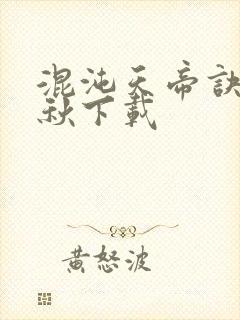 混沌天帝訣
秋下載
黃怒波